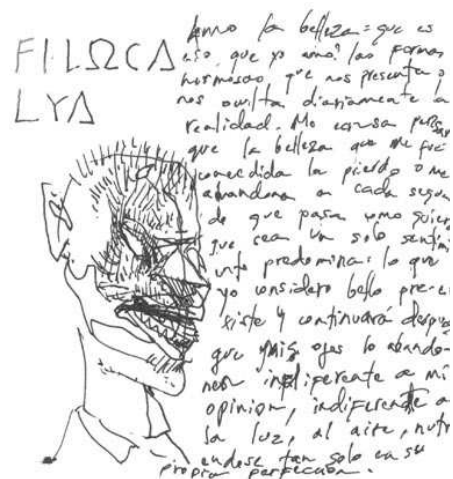 FILΩCA
LYA
Amo la belleza: que es
eso, que yo amo? las formas
hermosas que nos presenta o
nos oculta diariamente la
realidad. Me causa pesar
que la belleza que me fue
concedida la pierdo o me
abandona a cada segun
do que pasa como quiera
que sea un solo sentimi
ento predomina: lo que
yo considero bello pre-e
xiste y continuará después
que mis ojos lo abando-
nen indiferente a mi
opinion, indiferente a
la luz, al aire, nutri
endose tan solo en su
propia perfección.